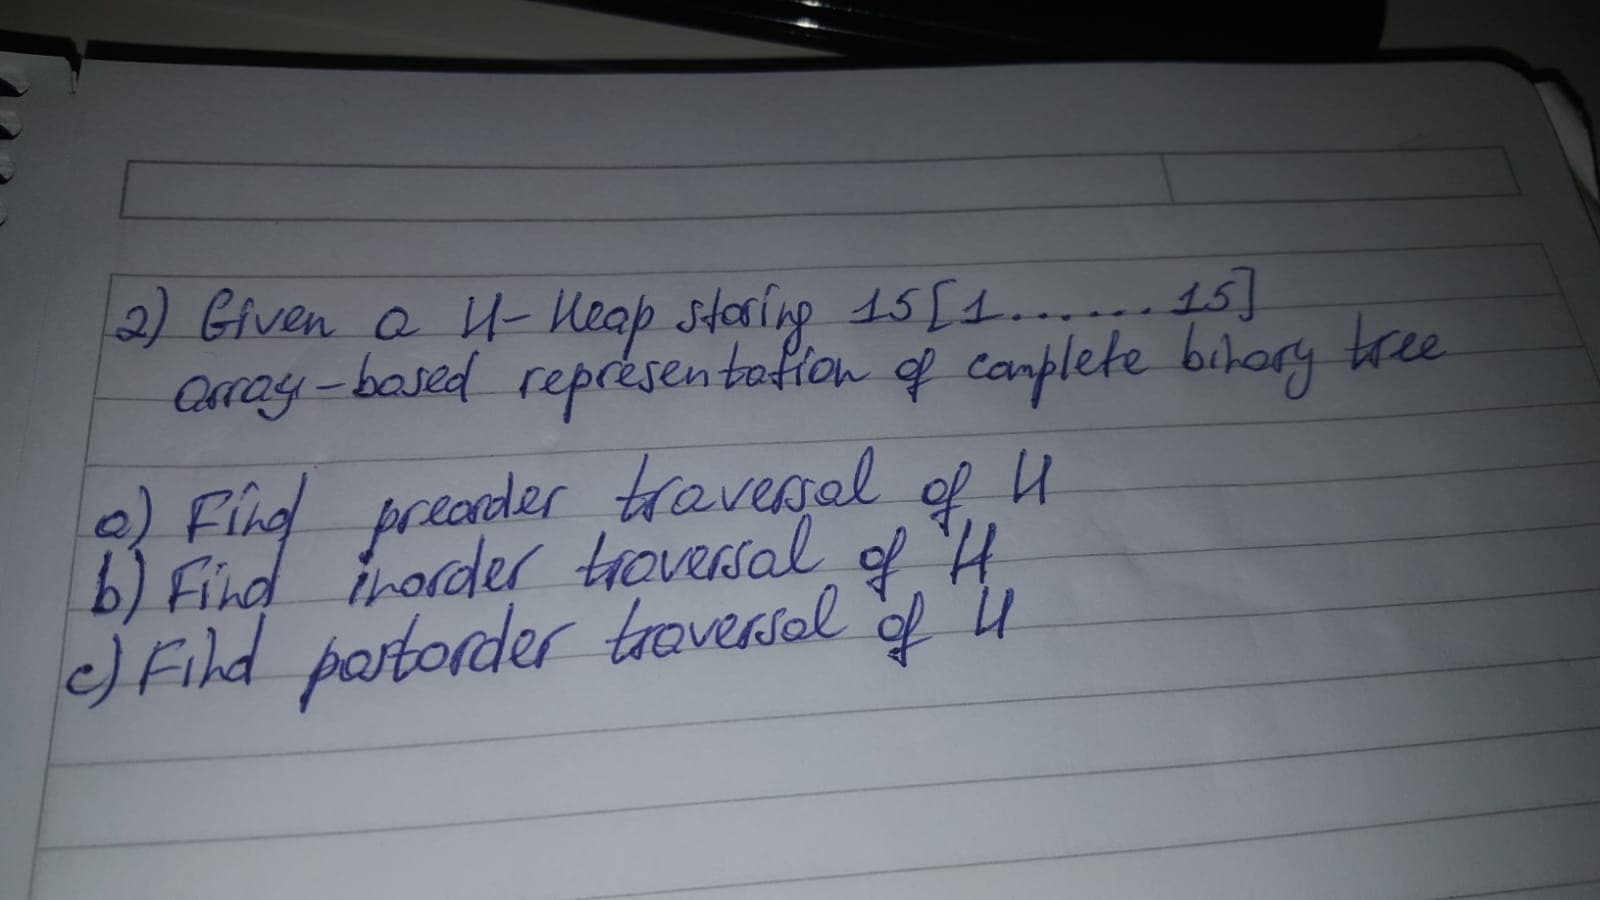 2) Given a H-Heap storing 15 [1.......15]
array-based representation of complete binary tree
a) Find preorder traversal of H
b) Find inorder traversal of H
c) Find postorder traversal of H